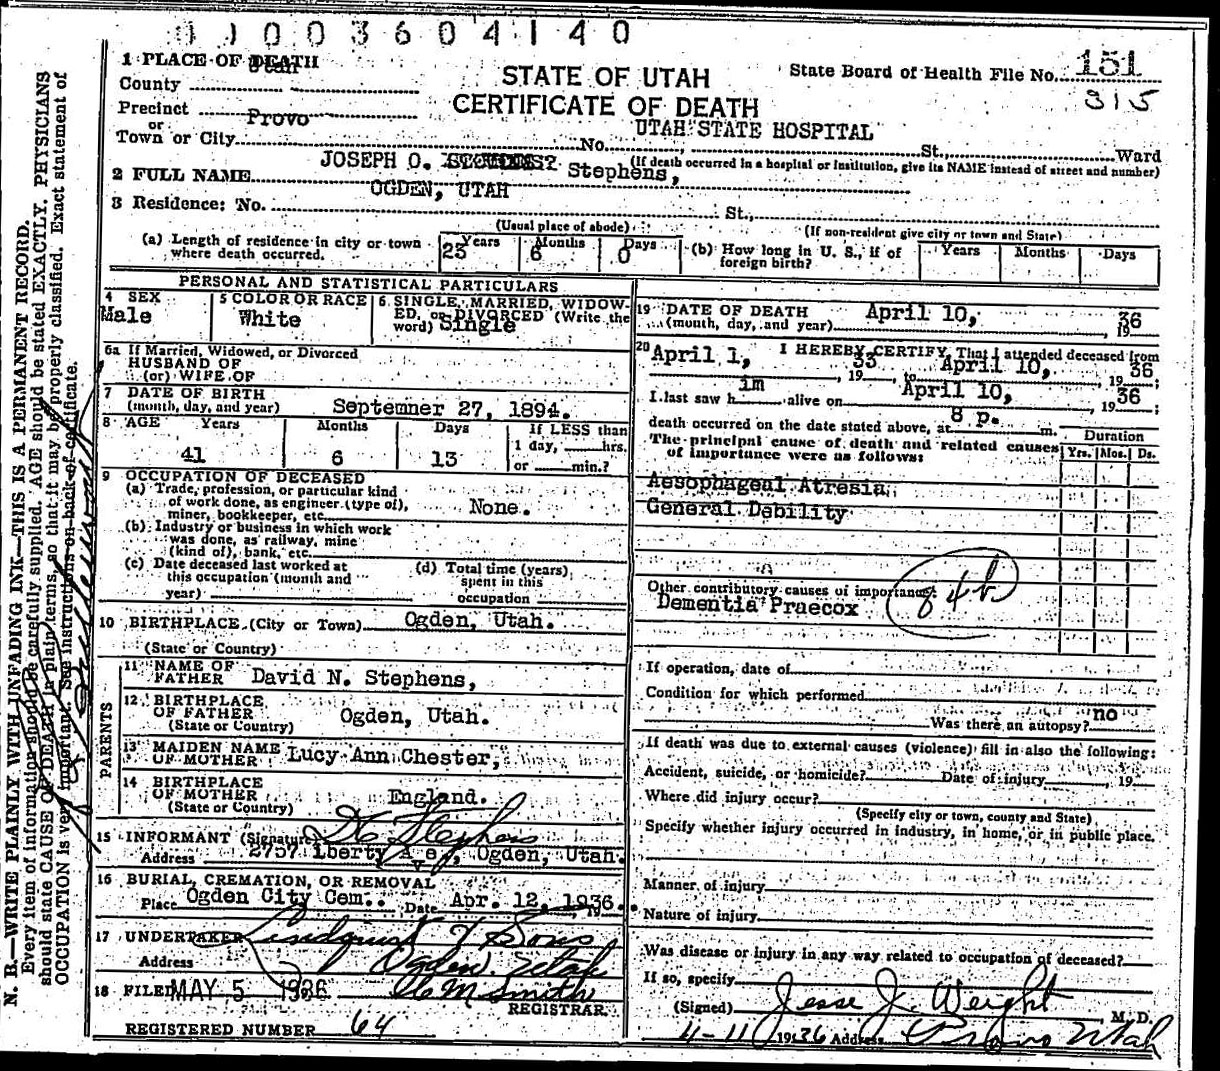 0 0 0 3 6 0 4 1 4 0
1 PLACE OF DEATH
County Utah
Precinct Provo
or
Town or City
STATE OF UTAH
CERTIFICATE OF DEATH
State Board of Health File No. 151
315
UTAH STATE HOSPITAL
No. St., Ward
(If death occurred in a hospital or Institution, give its NAME instead of street and number)
2 FULL NAME JOSEPH O. Stephens,
OGDEN, UTAH
3 Residence: No. St.,
(Usual place of abode) (If non-resident give city or town and State)
(a) Length of residence in city or town where death occurred. 23 Years 6 Months 0 Days
(b) How long in U. S., if of foreign birth? Years Months Days
PERSONAL AND STATISTICAL PARTICULARS
4 SEX Male
5 COLOR OR RACE White
6 SINGLE, MARRIED, WIDOW-
ED, or DIVORCED (Write the
word) Single
6a If Married, Widowed, or Divorced
HUSBAND OF
(or) WIFE OF
7 DATE OF BIRTH
(month, day, and year) Septemner 27, 1894.
8 AGE Years 41 Months 6 Days 13
If LESS than
1 day, hrs.
or min.?
9 OCCUPATION OF DECEASED
(a) Trade, profession, or particular kind
of work done, as engineer (type of),
miner, bookkeeper, etc. None.
(b) Industry or business in which work
was done, as railway, mine
(kind of), bank, etc.
(c) Date deceased last worked at
this occupation (month and
year)
(d) Total time (years)
spent in this
occupation
10 BIRTHPLACE (City or Town) Ogden, Utah.
(State or Country)
PARENTS
11 NAME OF
FATHER David N. Stephens,
12 BIRTHPLACE
OF FATHER Ogden, Utah.
(State or Country)
13 MAIDEN NAME
OF MOTHER Lucy Ann Chester,
14 BIRTHPLACE
OF MOTHER England.
(State or Country)
15 INFORMANT (Signature) Stephens
Address 2757 Lberty Ave., Ogden, Utah.
16 BURIAL, CREMATION, OR REMOVAL
Place Ogden City Cem.. Date Apr. 12, 1936.
17 UNDERTAKER Lindquist & Sons
Address Ogden Utah
18 FILED MAY 5 1936 Smith
REGISTRAR
REGISTERED NUMBER 64
19 DATE OF DEATH April 10, 1936
(month, day, and year)
20 I HEREBY CERTIFY, That I attended deceased from
April 1, 1933, to April 10, 1936;
I last saw him alive on April 10, 1936;
death occurred on the date stated above, at 8 p. m.
Duration
Yrs. Mos. Ds.
The principal cause of death and related causes
of importance were as follows:
Aesophageal Atresia
General Debility
Other contributory causes of importance: 84b
Dementia Praecox
If operation, date of
Condition for which performed
Was there an autopsy? no
If death was due to external causes (violence) fill in also the following:
Accident, suicide, or homicide? Date of injury , 19
Where did injury occur?
(Specify city or town, county and State)
Specify whether injury occurred in industry, in home, or in public place.
Manner of injury
Nature of injury
Was disease or injury in any way related to occupation of deceased?
If so, specify
(Signed) Jesse J. Weight M. D.
4-11 1936 Address Provo Utah
N. B.—WRITE PLAINLY WITH UNFADING INK—THIS IS A PERMANENT RECORD.
Every item of information should be carefully supplied. AGE should be stated EXACTLY. PHYSICIANS
should state CAUSE OF DEATH in plain terms, so that it may be properly classified. Exact statement of
OCCUPATION is very important. See instructions on back of certificate.